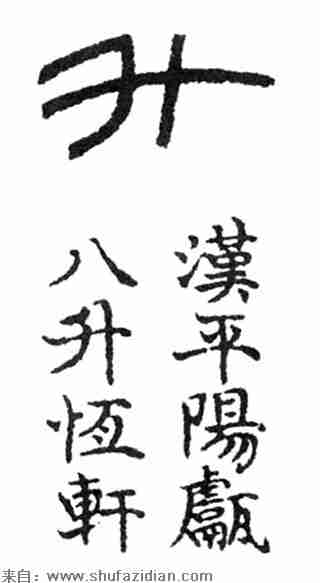 升
漢平陽甗
八升恆軒
来自：www.shufazidian.com